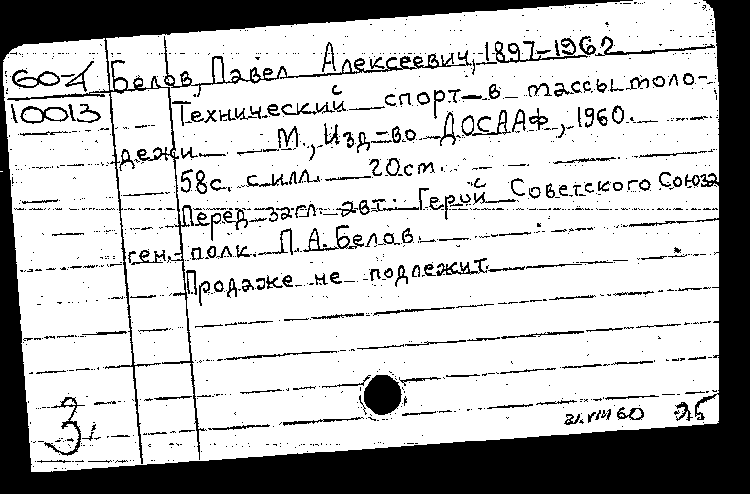 60-4 Белов, Павел Алексеевич, 1897-1962
10013 Технический спорт - в массы моло-
дежи. М., Изд-во ДОСААФ, 1960.
58с. с илл. 20см.
Перед загл. авт.: Герой Советского Союза
ген.-полк. П.А. Белов.
Продаже не подлежит.
3.
31.VIII 60 25